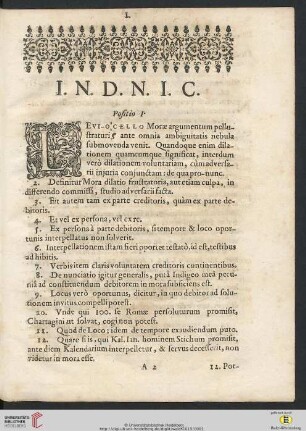 I.
I. N. D. N. I. C.
Positio I
LEVI-OCELLO Moræ argumentum pellu-
straturis ante omnia ambiguitatis nebula
submovenda venit. Quandoque enim dila-
tionem quamcumque significat, interdum
verò dilationem voluntariam, cum adversa-
rii injuria conjunctam: de qua pro-nunc.
2. Definitur Mora dilatio frustratoria, aut etiam culpa, in
differendo commissa, studio adversarii facta.
3. Est autem tam ex parte creditoris, quàm ex parte de-
bitoris.
4. Et vel ex persona, vel ex re.
5. Ex persona à parte debitoris, si tempore & loco opor-
tunis interpellatus non solverit.
6. Interpellationem istam fieri oportet testatò, id est, testibus
ad hibitis.
7. Verbis item claris voluntatem creditoris continentibus.
8. De nunciatio igitur generalis, putà Indigeo meâ pecu-
niâ ad constituendum debitorem in mora non sufficit.
9. Locus verò oportunus, dicitur, in quo debitor ad solu-
tionem invitus compelli potest.
10. Vnde qui 100. se Romæ persoluturum promisit,
Charragini ut solvat, cogi non potest.
11. Quod de Loco; idem de tempore exaudiendum puto.
12. Quare si is, qui Kal. Ian. hominem Stichum promisit,
ante diem Kalendarum interpelletur, & servus decesserit, non
videtur in mora esse.
A 2
12. Pot-